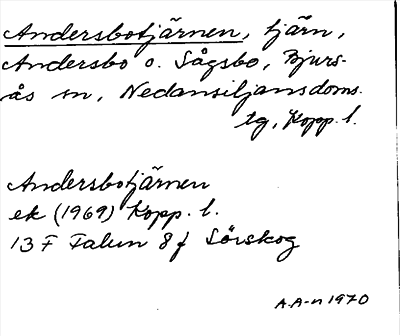 Andersbotjärnen, tjärn,
Andersbo o. Sågsbo, Bjurs-
ås sn, Nedansiljansdoms.
tg, Kopp. l.
Andersbotjärnen
ek (1969) Kopp. l.
13 F Falun 8 f Sörskog
A.A-n 1970